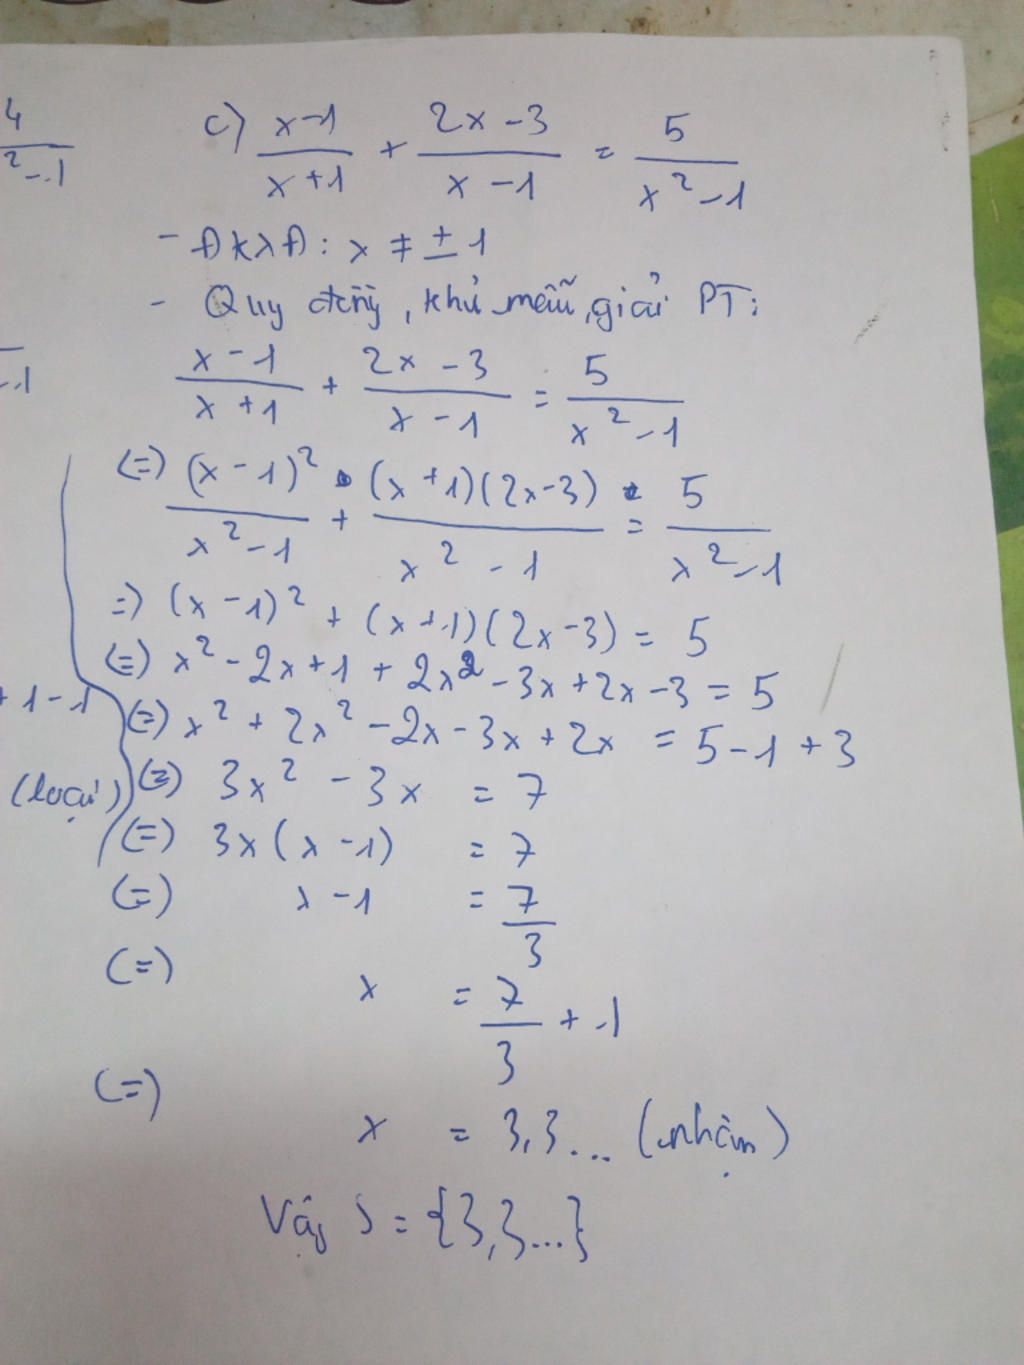 4
²-1
-1
+ 1 - 1
(loại)
c) (x-1)/(x+1) + (2x-3)/(x-1) = 5/(x²-1)
- ĐKXĐ: x ≠ ± 1
- Quy đồng, khử mẫu, giải PT:
(x-1)/(x+1) + (2x-3)/(x-1) = 5/(x²-1)
(=) (x-1)²/(x²-1) + (x+1)(2x-3)/(x²-1) = 5/(x²-1)
=) (x-1)² + (x+1)(2x-3) = 5
(=) x² - 2x + 1 + 2x² - 3x + 2x - 3 = 5
(=) x² + 2x² - 2x - 3x + 2x = 5 - 1 + 3
(=) 3x² - 3x = 7
(=) 3x(x-1) = 7
(=) x - 1 = 7/3
(=) x = 7/3 + 1
(=) x = 3,3... (nhận)
Vậy S = {3,3...}